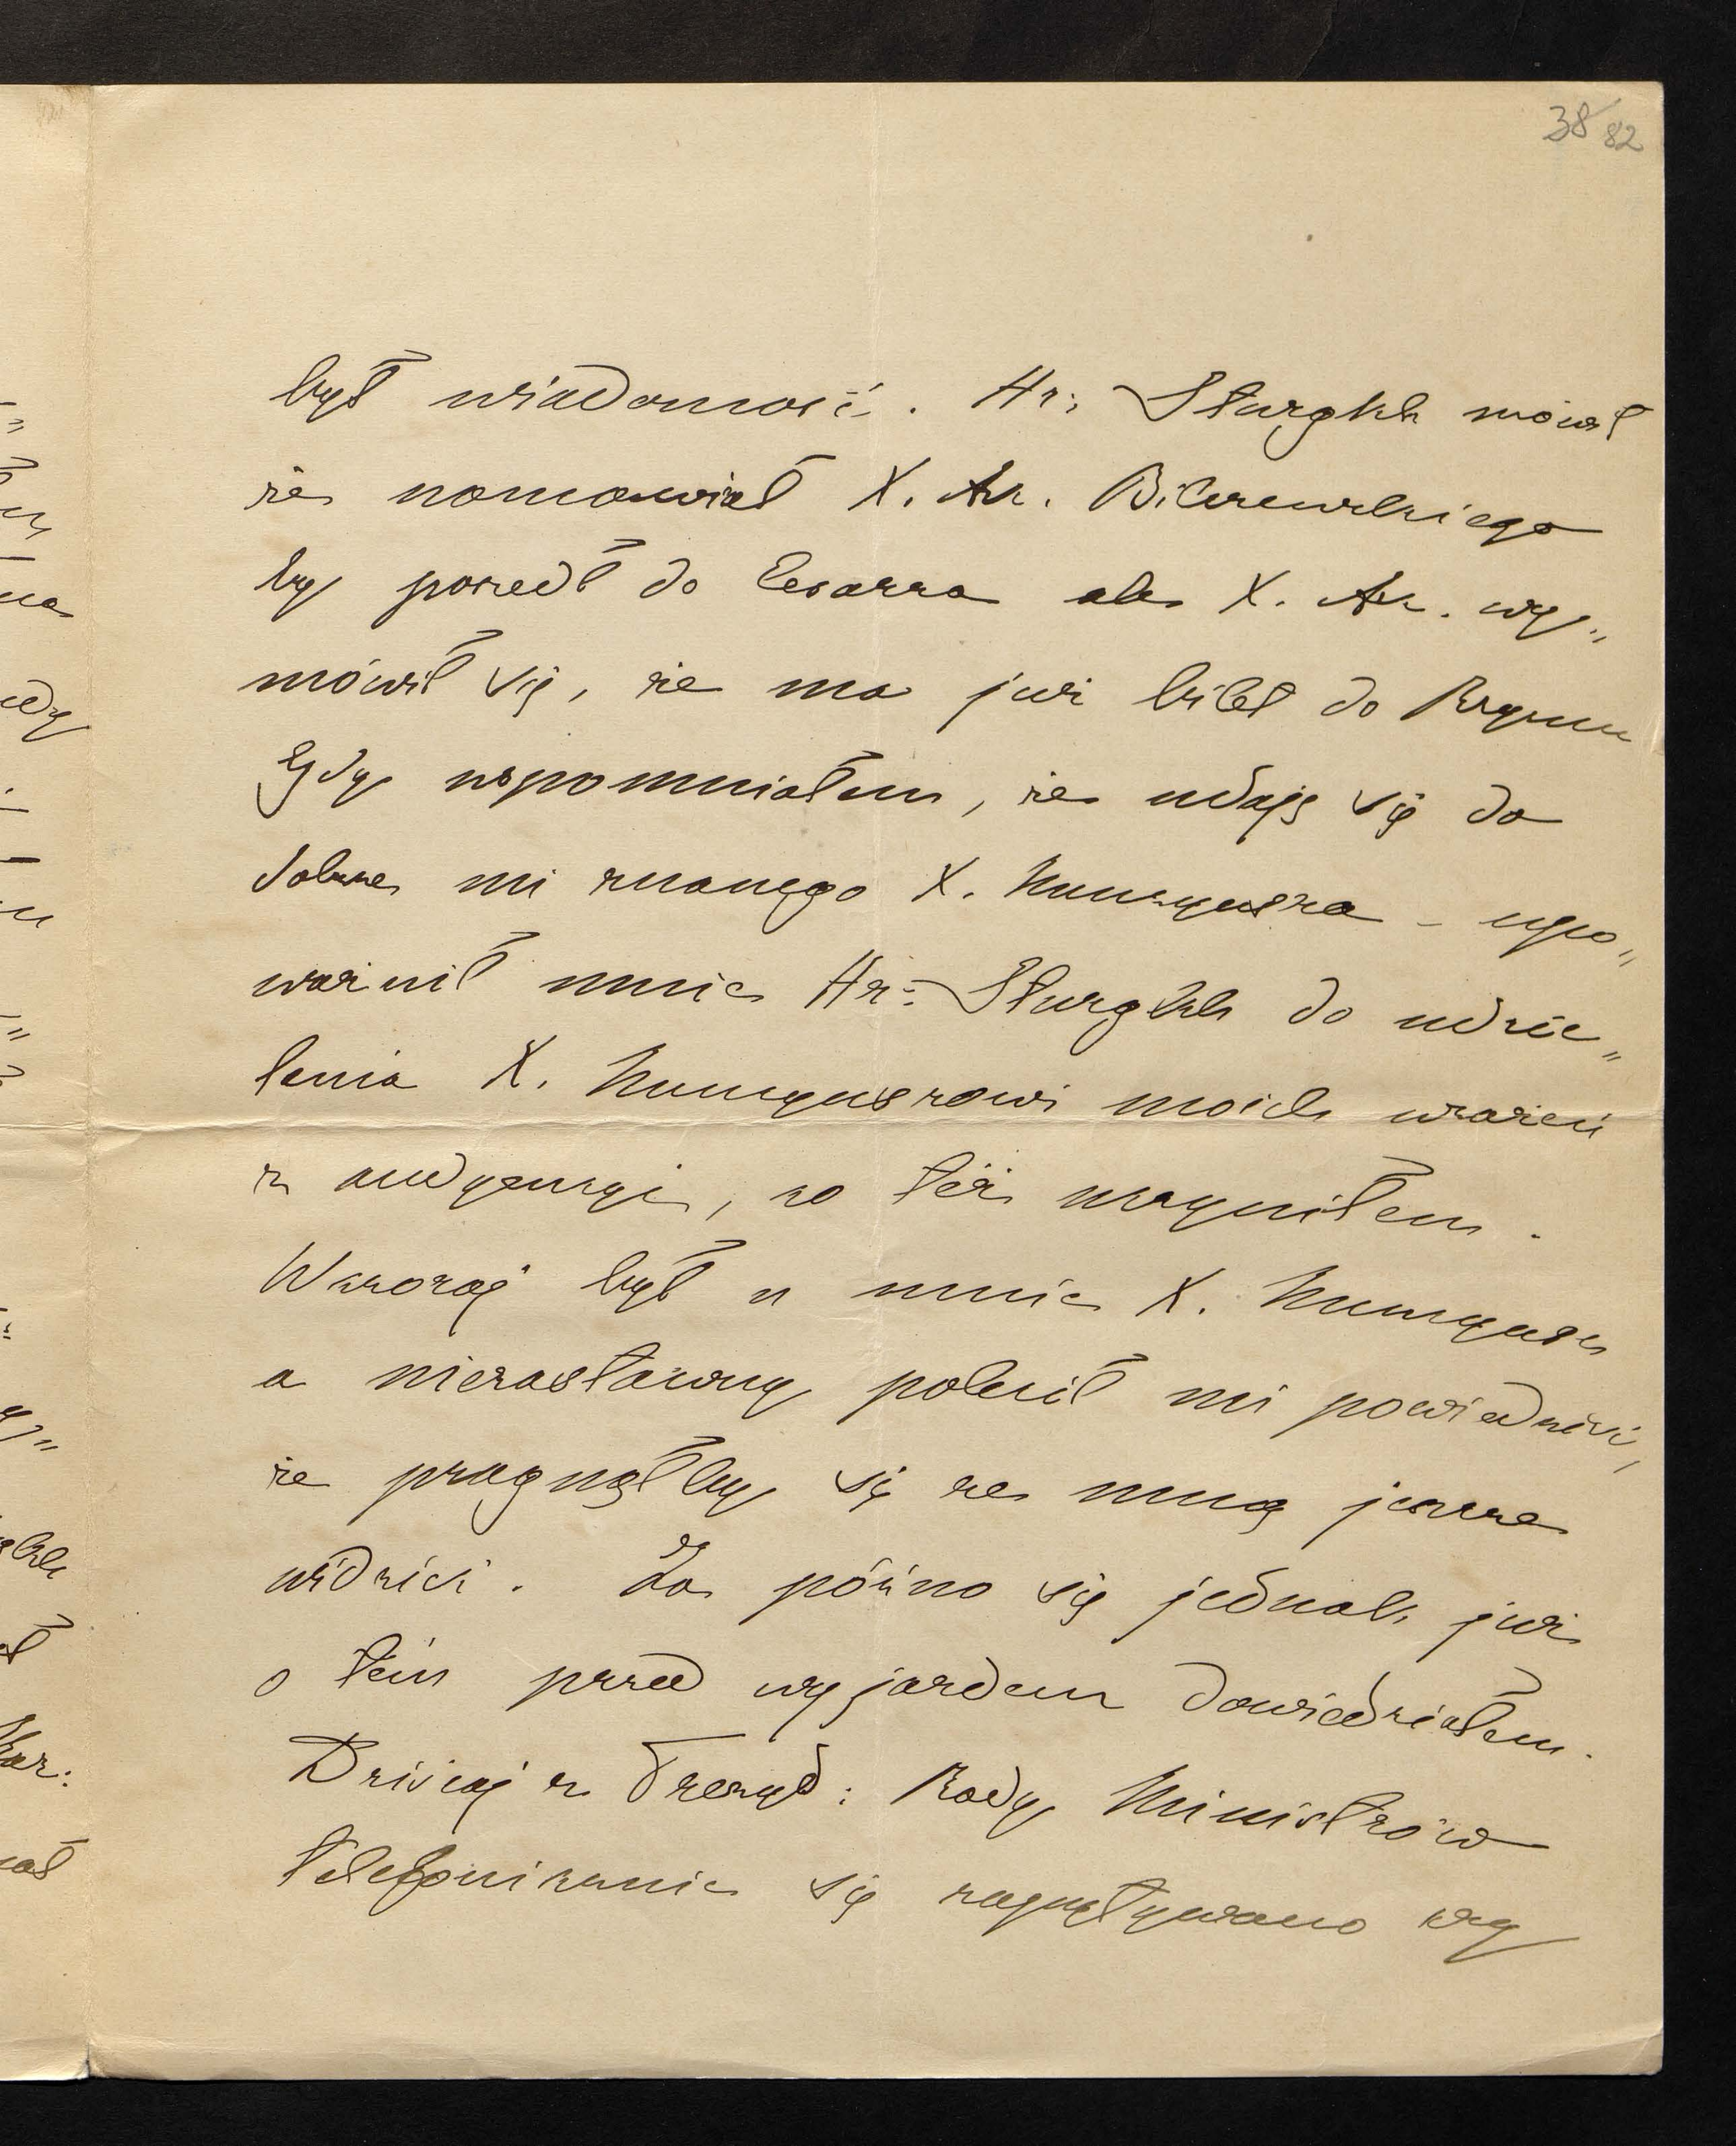 38/82
był wiadomość. Hr: Sturgkh mówił
że namawiał X. Ar. Bilczewskiego
by poszedł do Cesarza ale X. Ar. wy„
mówił się, że ma już bilet do Rzymu
Gdy wspomniałem, że udaję się do
dobrze mi znanego X. Nuncyusza – upo„
ważnił mnie Hr: Sturgkh do udzie„
lenia X. Nuncyuszowi moich wrażeń
z audyencyi, co też uczyniłem.
Wczoraj był u mnie X. Nuncyusz
a niezastawszy polecił mi powiedzieć,
że pragnąłby się ze mną jeszcze
widzieć. Za późno się jednak już
o tem przed wyjazdem dowiedziałem.
Dzisiaj z Prezyd: Rady Ministrów
telefonicznie się zapytywano czy